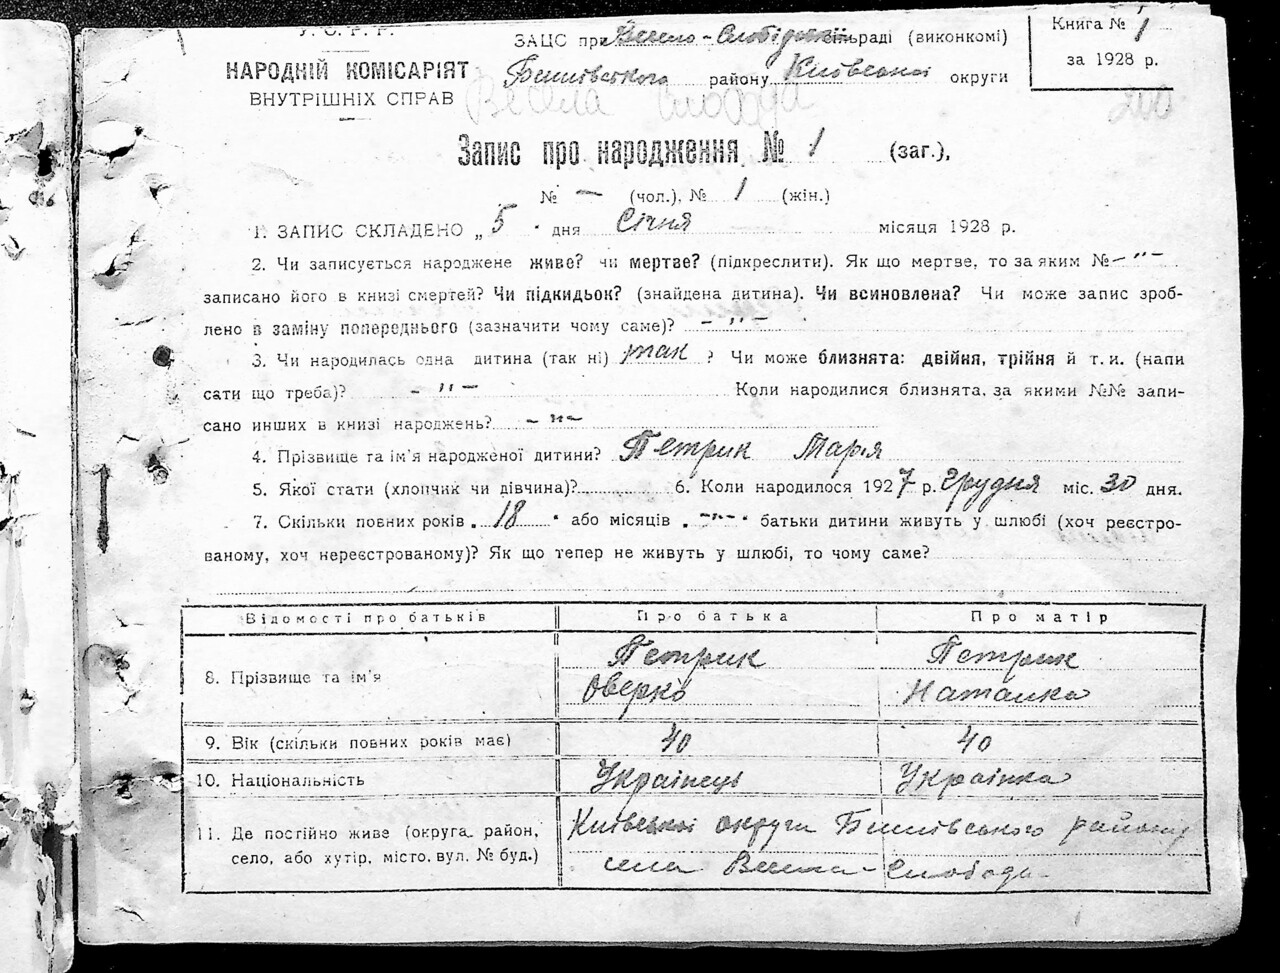 У. С. Р. Р.
НАРОДНІЙ КОМІСАРІЯТ
ВНУТРІШНІХ СПРАВ
ЗАЦС при Весело-Слобідській сільраді (виконкомі)
Бишівського району Київської округи
Весела Слобода
Книга № 1
за 1928 р.
200
Запис про народження № 1 (заг.),
№ — (чол.), № 1 (жін.)
1. ЗАПИС СКЛАДЕНО „ 5 " дня Січня місяця 1928 р.
2. Чи записується народжене живе? чи мертве? (підкреслити). Як що мертве, то за яким № – " –
записано його в книзі смертей? Чи підкидьок? (знайдена дитина). Чи всиновлена? Чи може запис зроб-
лено в заміну попереднього (зазначити чому саме)? – " –
3. Чи народилась одна дитина (так ні) так ? Чи може близнята: двійня, трійня й т. и. (напи
сати що треба)? – " – Коли народилися близнята, за якими №№ запи-
сано инших в книзі народжень? – " –
4. Прізвище та ім'я народженої дитини? Петрик Марія
5. Якої стати (хлопчик чи дівчина)? 6. Коли народилося 1927 р. Грудня міс. 30 дня.
7. Скільки повних років „ 18 " або місяців „ – " – " батьки дитини живуть у шлюбі (хоч реєстро-
ваному, хоч нереєстрованому)? Як що тепер не живуть у шлюбі, то чому саме?
Відомості про батьків Про батька Про матір
8. Прізвище та ім'я Петрик Оверко Петрик Наталка
9. Вік (скільки повних років має) 40 40
10. Національність Українець Українка
11. Де постійно живе (округа, район, Київської округи Бишівського району
село, або хутір, місто, вул. № буд.) села Весела-Слобода